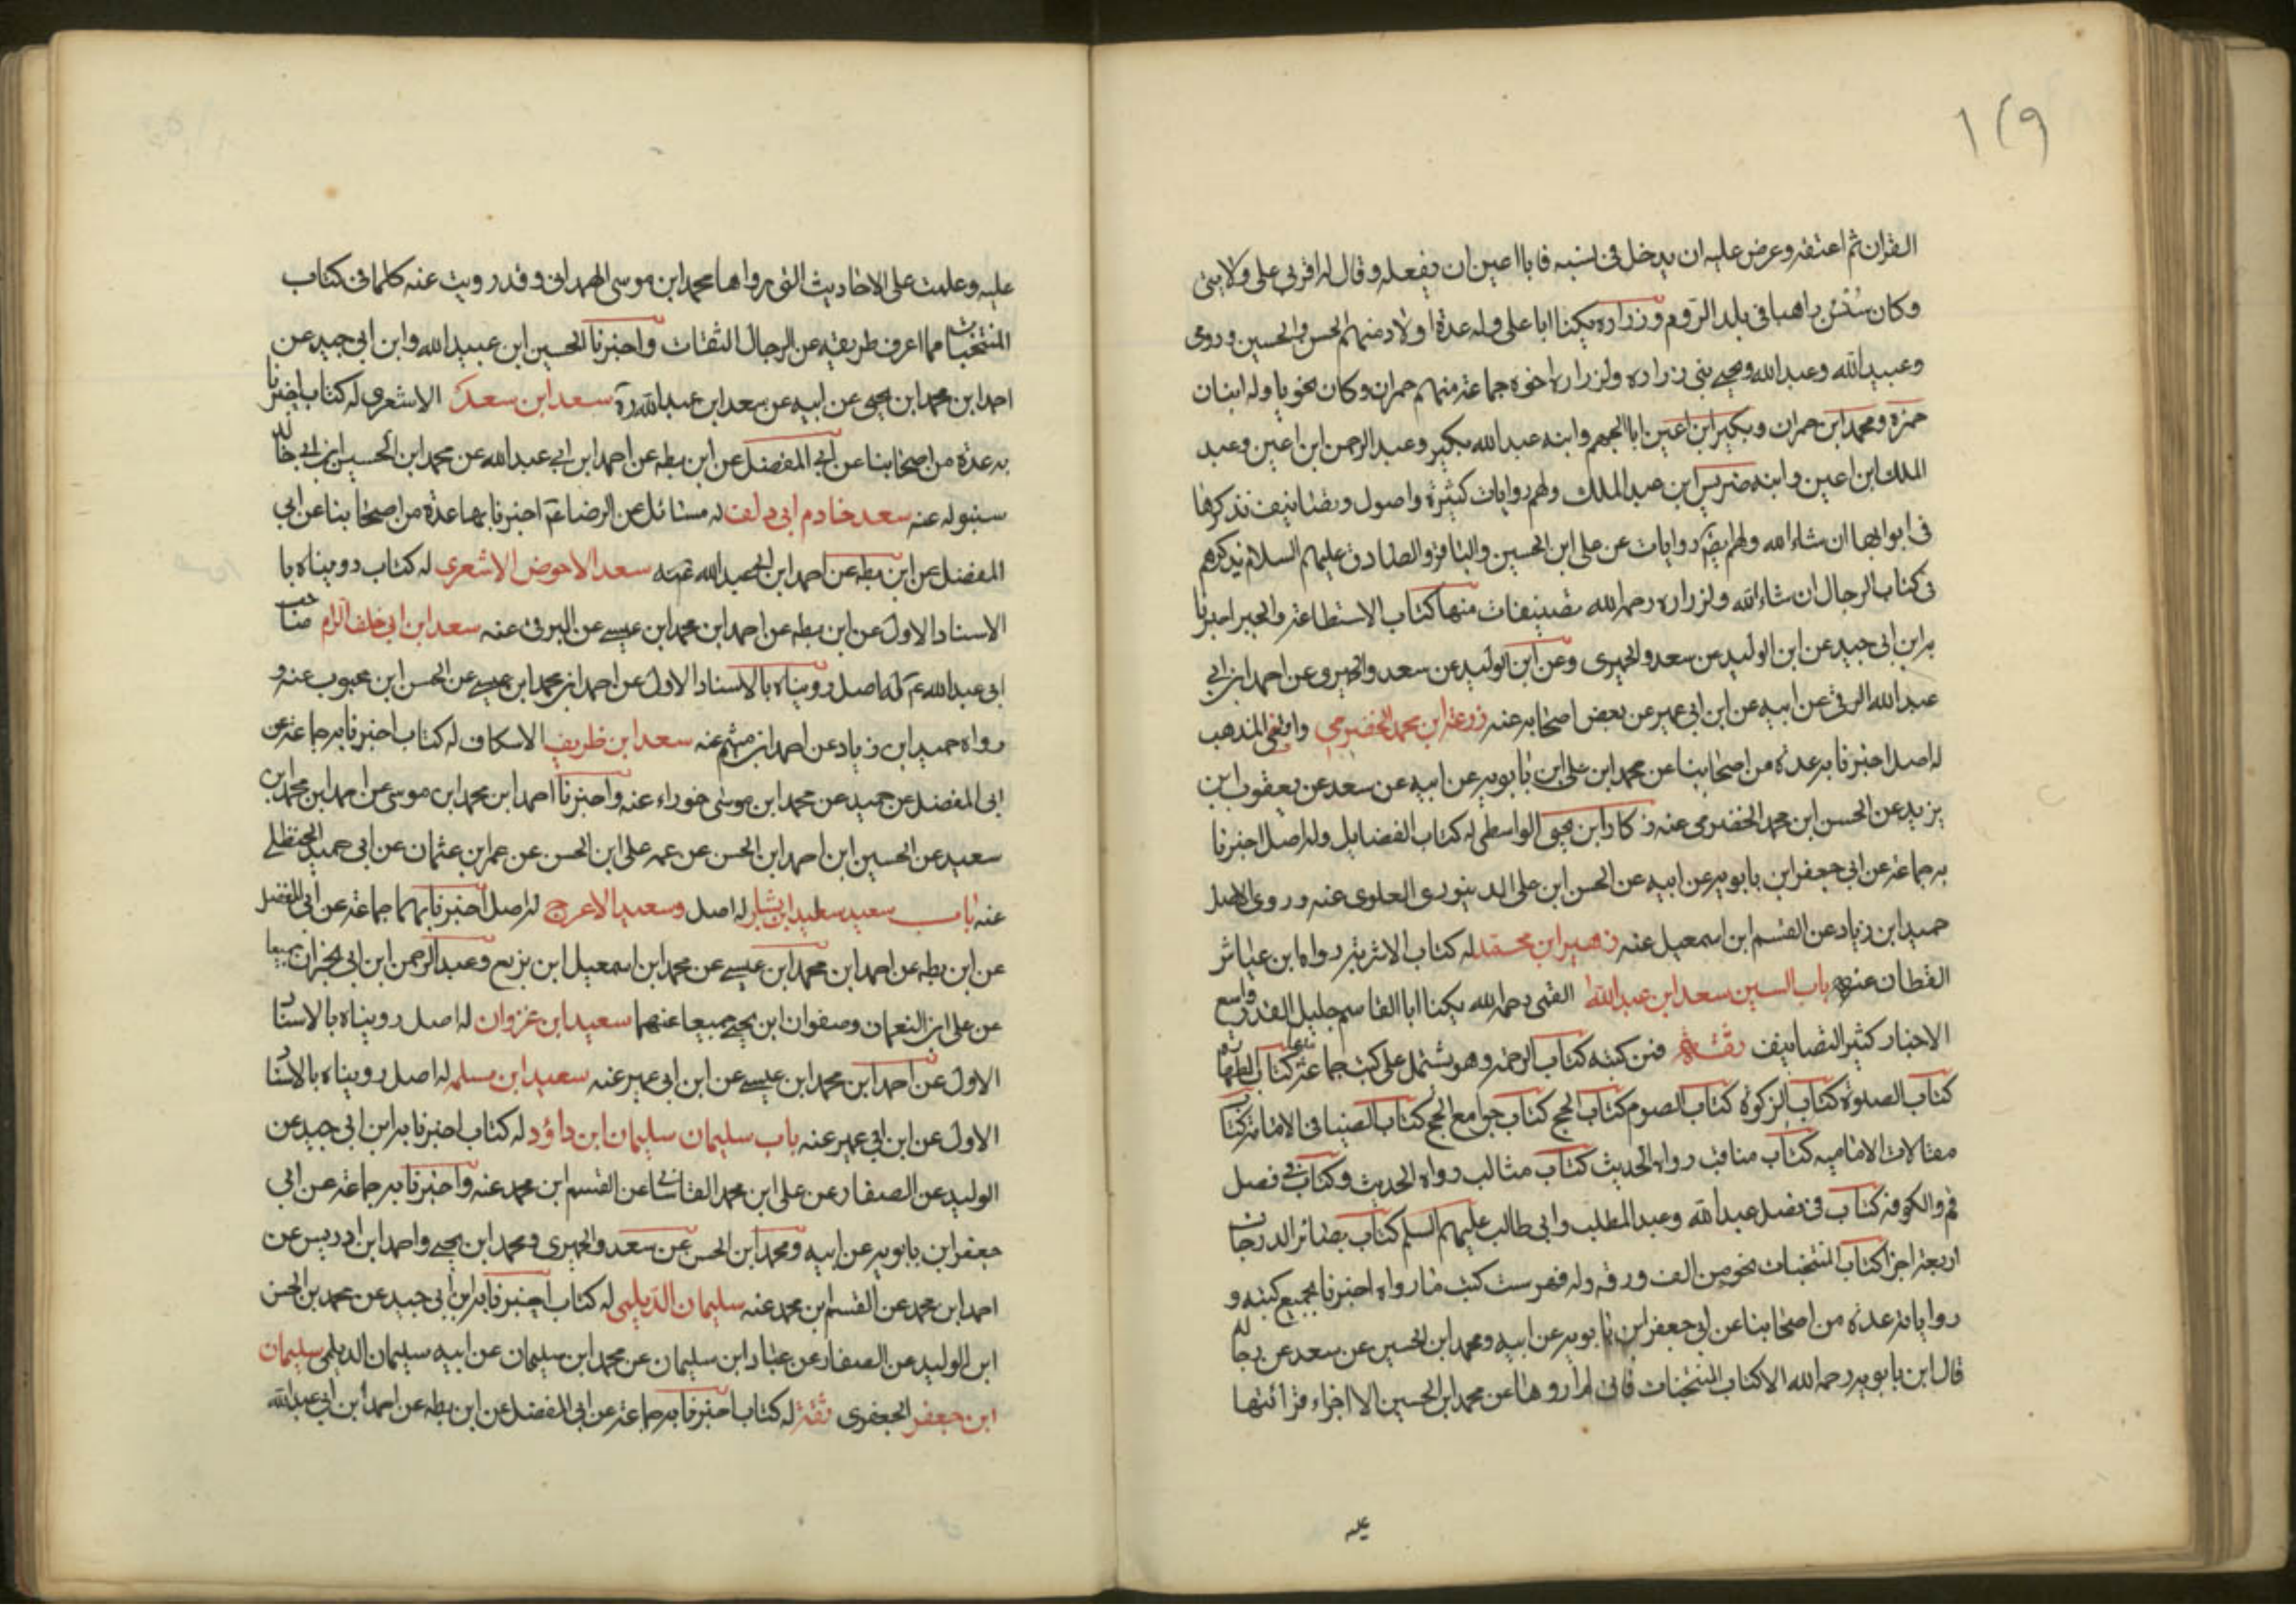 ١٢٩
القران ثم اعتقه وعرض عليه ان يدخل فى نسبه فابا اعين ان يفعله وقال له اقرني على ولايتى
وكان سُنسُن راهبا فى بلد الروم وزراره يكنا ابا على وله عدة اولاد منهم الحسن والحسين ورومى
وعبيد الله وعبد الله ويحيى بنى زراره ولزراره اخوه جماعة منهم حمران وكان نحويا وله ابنان
حمزه ومحمد ابن حمران وبكير ابن اعين ابا الجهم وابنه عبد الله بكير وعبد الرحمن ابن اعين وعبد
الملك ابن اعين وابنه ضريس ابن عبد الملك ولهم روايات كثيرة واصول وتصانيف نذكرها
فى ابوابها ان شاء الله ولهم ايضا روايات عن على ابن الحسين والباقر والصادق عليهم السلام نذكرهم
فى كتاب الرجال ان شاء الله ولزراره رحمه الله تصنيفات منها كتاب الاستطاعة والجبر اخبرنا
به ابن ابى جيد عن ابن الوليد عن سعد والحميرى وعن ابن الوليد عن سعد والحميرى عن احمد ابن ابي
عبد الله البرقى عن ابيه عن ابن ابى عمير عن بعض اصحابه عنه زرعة ابن محمد الحضرمي واقفى المذهب
له اصل اخبرنا به عدة من اصحابنا عن محمد ابن على ابن بابويه عن ابيه عن سعد عن يعقوب ابن
يزيد عن الحسن ابن محمد الحضرمى عنه زكار ابن يحيى الواسطى له كتاب الفضايل وله اصل اخبرنا
به جماعة عن ابى جعفر ابن بابويه عن ابيه عن الحسن ابن على الدينورى العلوى عنه وروى الاصل
حميد ابن زياد عن القسم ابن اسمعيل عنه زهير ابن محمد له كتاب الاشربة رواه ابن عياش
القطان عنه باب السين سعد ابن عبد الله القمى رحمه الله يكنا ابا القاسم جليل القدر واسع
الاخبار كثير التصانيف ثقة فمن كتبه كتاب الرحمة وهو يشتمل على كتب جماعة كتاب الطهارة
كتاب الصلوة كتاب الزكوة كتاب الصوم كتاب الحج كتاب جوامع الحج كتاب الضيا فى الامامة كتاب
مقالات الاماميه كتاب مناقب رواه الحديث كتاب مثالب رواه الحديث وكتاب فى فضل
قم والكوفه كتاب فى فضل عبد الله وعبد المطلب وابى طالب عليهم السلم كتاب بصائر الدرجات
اربعة اجزا كتاب المنتخبات نحو من الف ورقه وله فهرست كتب ما رواه اخبرنا بجميع كتبه و
رواياته عدة من اصحابنا عن ابى جعفر ابن بابويه عن ابيه ومحمد ابن الحسين عن سعد عن رجاله
قال ابن بابويه رحمه الله الا كتاب المنتخبات فانى لم اروها عن محمد ابن الحسين الا اجزاء قرائتها
عليه وعلمت على الاحاديث التى رواها محمد ابن موسى الهمدانى وقد رويت عنه كلما فى كتاب
المنتخبات مما اعرف طريقه عن الرجال الثقات واخبرنا الحسين ابن عبيد الله وابن ابى جيد عن
احمد ابن محمد ابن يحيى عن ابيه عن سعد ابن عبد الله ره سعد ابن سعد الاشعرى له كتاب اخبرنا
به عدة من اصحابنا عن ابي المفضل عن ابن بطه عن احمد ابن ابي عبد الله عن محمد ابن الحسين ابن ابي خالد
سنبوله عنه سعد خادم ابى دلف له مسائل عن الرضا عم اخبرنا بها عدة من اصحابنا عن ابى
المفضل عن ابن بطه عن احمد ابن عبد الله عنه سعد الاحوص الاشعرى له كتاب رويناه با
الاسناد الاول عن ابن بطه عن احمد ابن محمد ابن عيسے عن البرقى عنه سعد ابن ابى خلف الزام صاحب
ابى عبد الله عم له اصل رويناه بالاسناد الاول عن احمد ابن محمد ابن عيسے عن الحسن ابن محبوب عنه و
رواه حميد ابن زياد عن احمد ابن ميثم عنه سعد ابن ظريف الاسكاف له كتاب اخبرنا به جماعة عن
ابى المفضل عن حميد عن محمد ابن موسى خوراء عنه واخبرنا احمد ابن محمد ابن موسى عن احمد ابن محمد ابن
سعيد عن الحسين ابن احمد ابن الحسن عن عمه على ابن الحسن عن عمر ابن عثمان عن ابى حميد الحنظلے
عنه باب سعيد سعيد ابن يسار له اصل وسعيد الاعرج له اصل اخبرنا بهما جماعة عن ابى المفضل
عن ابن بطه عن احمد ابن محمد ابن عيسے عن محمد ابن اسمعيل ابن بزيع وعبد الرحمن ابن ابى نجران جميعا
عن على ابن النعمان وصفوان ابن يحيے جميعا عنهما سعيد ابن غزوان له اصل رويناه بالاسناد
الاول عن احمد ابن محمد ابن عيسے عن ابن ابى عمير عنه سعيد ابن مسلمه له اصل رويناه بالاسناد
الاول عن ابن ابى عمير عنه باب سليمان سليمان ابن داؤد له كتاب اخبرنا به ابن ابى جيد عن
الوليد عن الصفار عن على ابن محمد القاسانى عن القسم ابن محمد عنه واخبرنا به جماعة عن ابى
جعفر ابن بابويه عن ابيه ومحمد ابن الحسن عن سعد والحميرى ومحمد ابن يحيے واحمد ابن ادريس عن
احمد ابن محمد عن القسم ابن محمد عنه سليمان الديلمى له كتاب اخبرنا به ابن ابى جيد عن محمد بن الحسن
ابن الوليد عن الصفار عن عباد ابن سليمان عن محمد ابن سليمان عن ابيه سليمان الديلمى سليمان
ابن جعفر الجعفرى ثقة له كتاب اخبرنا به جماعة عن ابى المفضل عن ابن بطه عن احمد ابن ابى عبد الله